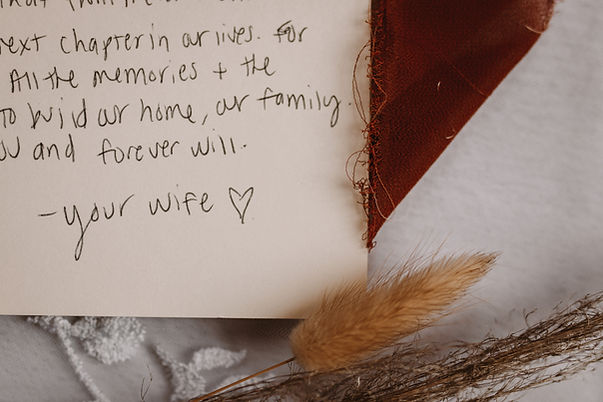 next chapter in our lives. For
All the memories + the
to build our home, our family.
and forever will.
- your wife ♡